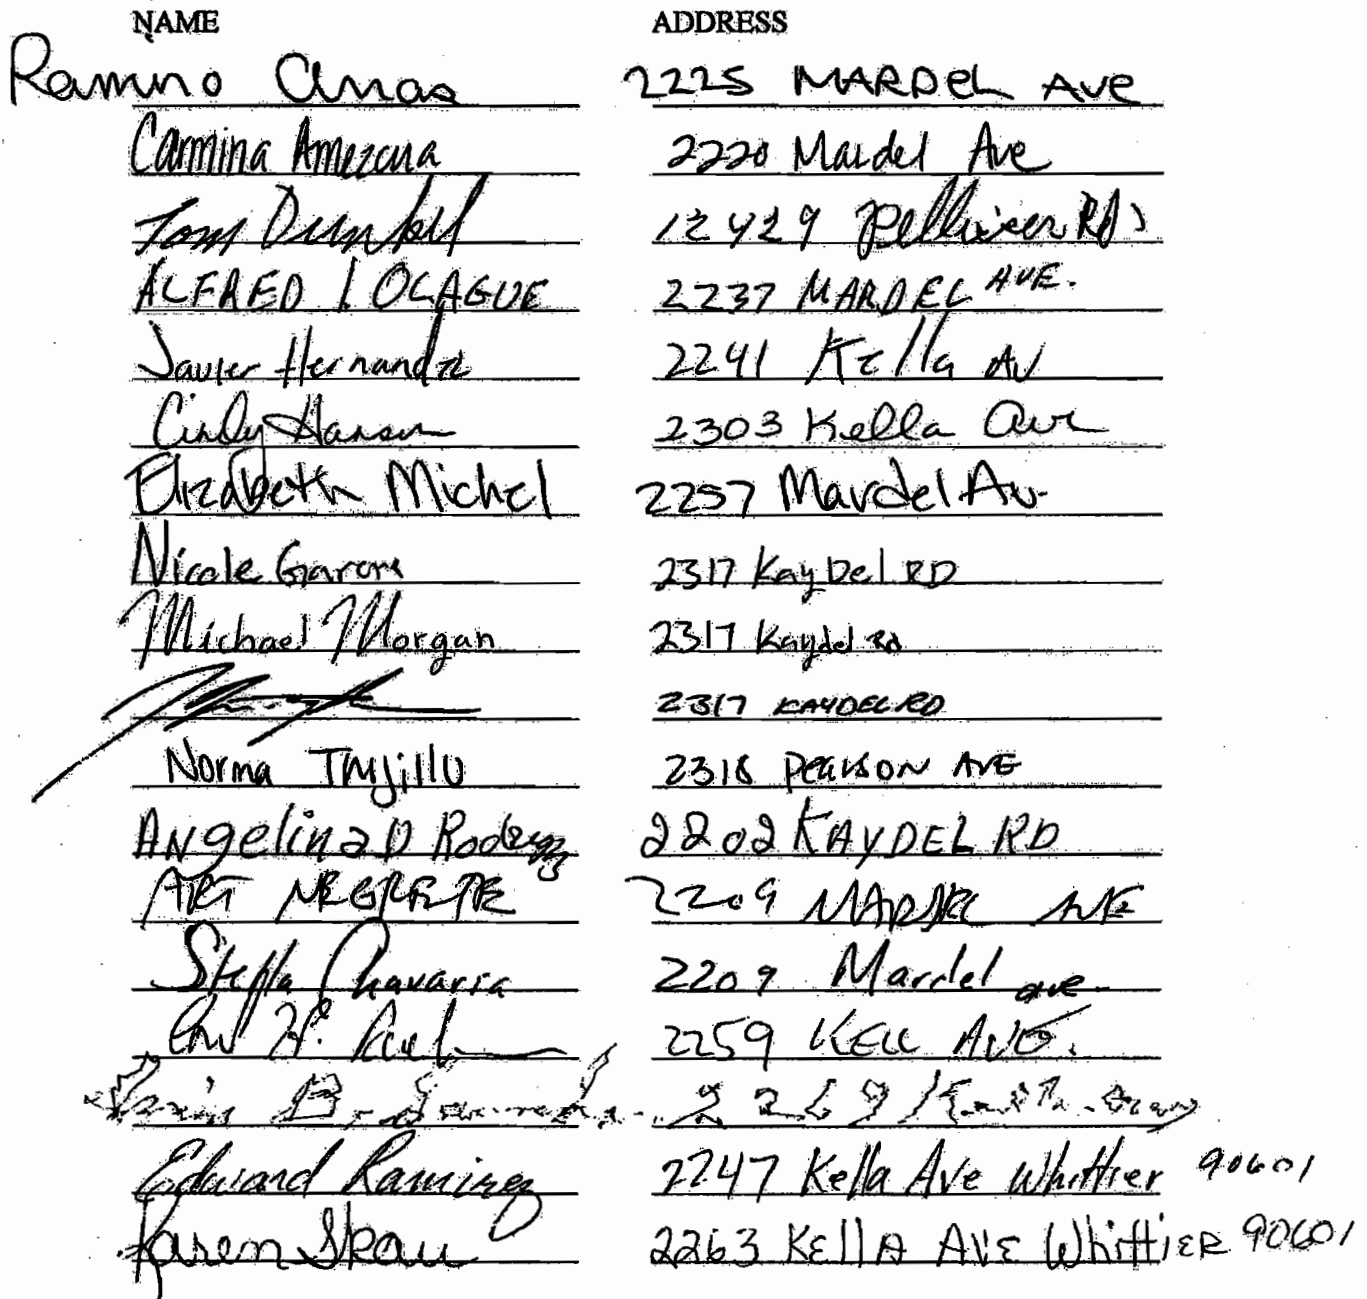 NAME ADDRESS
Ramiro 2225 MARDEL AVE
Carmina Amezcua 2220 Mardel Ave
Tom 12429 Pellissier RD
ALFRED J OLAGUE 2237 MARDEL AVE.
Javier Hernandez 2241 Kella AV
Cindy Hansen 2303 Kella Ave
Elizabeth Michel 2257 Mardel Av.
Nicole 2317 Kaydel RD
Michael Morgan 2317 Kaydel Rd
2317 KAYDEL RD
Norma Trujillo 2318 Pearson AVE
Angelina D 2202 KAYDEL RD
ART NEGRETE 2209 MARDEL AVE
Stella Chavarria 2209 Mardel ave.
2259 KELL AVE.
B. 2269
Edward Ramirez 2247 Kella Ave Whittier 90601
Karen Skau 2263 KEllA AVE WhittiER 90601